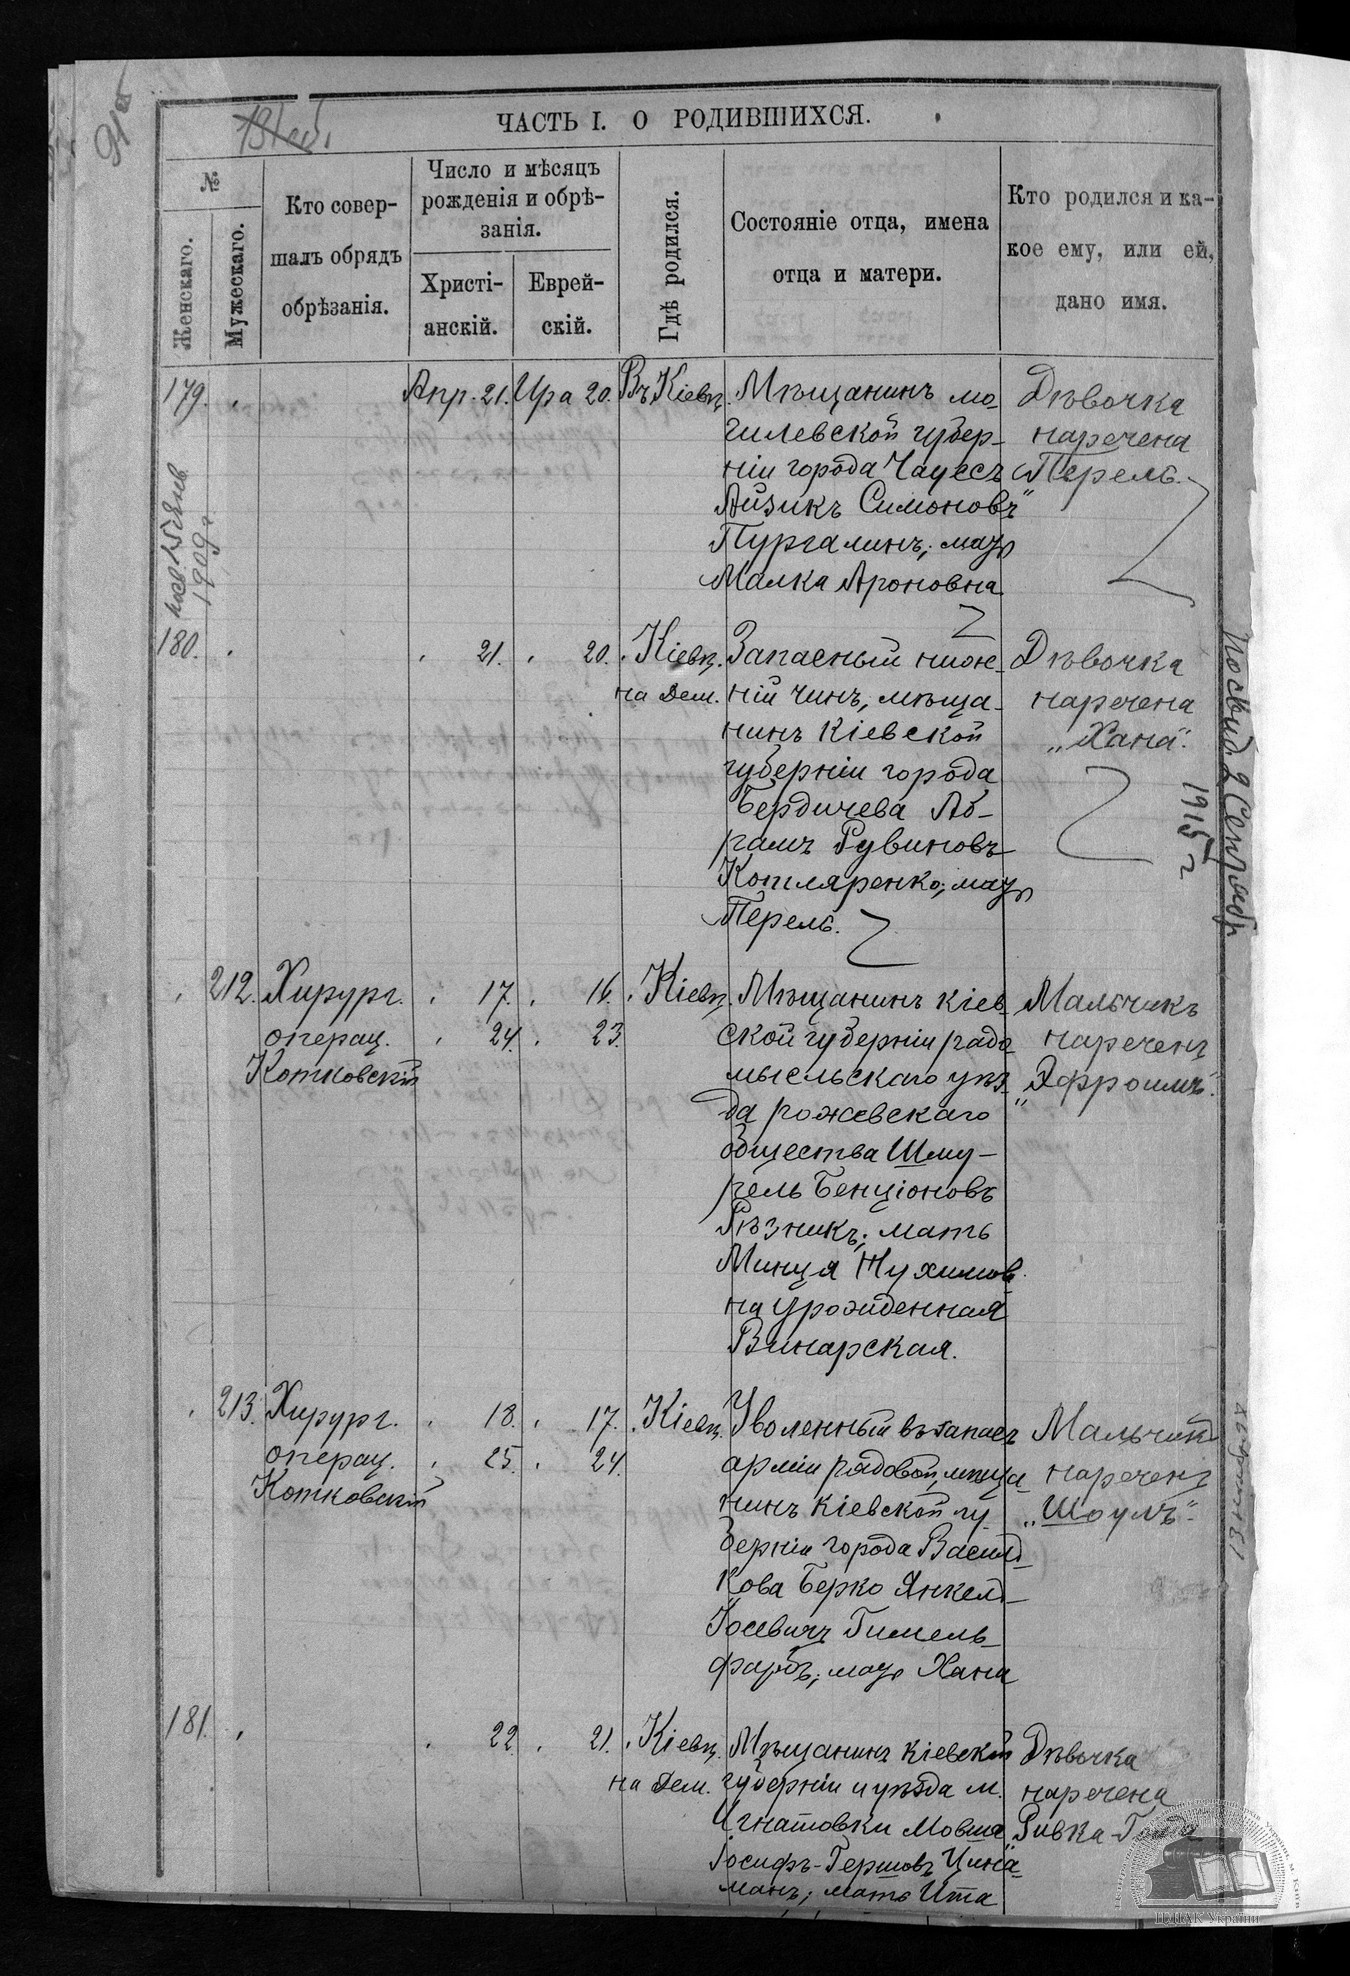 ЧАСТЬ I. О РОДИВШИХСЯ.
№
Женскаго.
Мужескаго.
Кто совер-
шалъ обрядъ
обрѣзанія.
Число и мѣсяцъ
рожденія и обрѣ-
занія.
Христі-
анскій.
Еврей-
скій.
Гдѣ родился.
Состояніе отца, имена
отца и матери.
Кто родился и ка-
кое ему, или ей,
дано имя.
179. Апр. 21. Ира 20. Въ Кіевѣ.
Мѣщанинъ мо-
гилевской губер-
ніи города Чаусъ
Айзикъ Симоновъ
Пургалинъ; мать
Малка Ароновна
Дѣвочка
наречена
„Перель."
1909 г.
180. 21. 20. Кіевѣ.
на Дем.
Запасный ниж-
ній чинъ, мѣща-
нинъ Кіевской
губерніи города
Бердичева Аб-
рамъ Рувиновъ
Котляренко; мать
Перель.
Дѣвочка
наречена
„Хана".
Посвид. 2 Сентябр
1915 г
212. Хирург. 17. 16. Кіевѣ.
операц. 24. 23.
Котковскій
Мѣщанинъ кіев-
ской губерніи радо-
мысльскаго уѣз-
да рожевскаго
общества Шму-
ель Бенціоновъ
Рѣзникъ; мать
Минця Нухимов-
на урожденная
Винарская.
Мальчикъ
нареченъ
„Эфроимъ".
213. Хирург. 18. 17. Кіевѣ.
операц. 25. 24.
Котковскій
Уволенный въ запасъ
арміи рядовой, мѣща-
нинъ Кіевской гу-
берніи города Василь-
кова Берко Янкель-
Іосевичъ Гимель-
фарбъ; мать Хана
Мальчикъ
нареченъ
„Шоулъ".
181. 22. 21. Кіевѣ.
на Дем.
Мѣщанинъ Кіевской
губерніи и уѣзда м.
Игнатовки Мовша
Іосифъ-Гершовъ Цина-
манъ; мать Ита
Дѣвочка
наречена
„Ривка-
ЦДІАК України